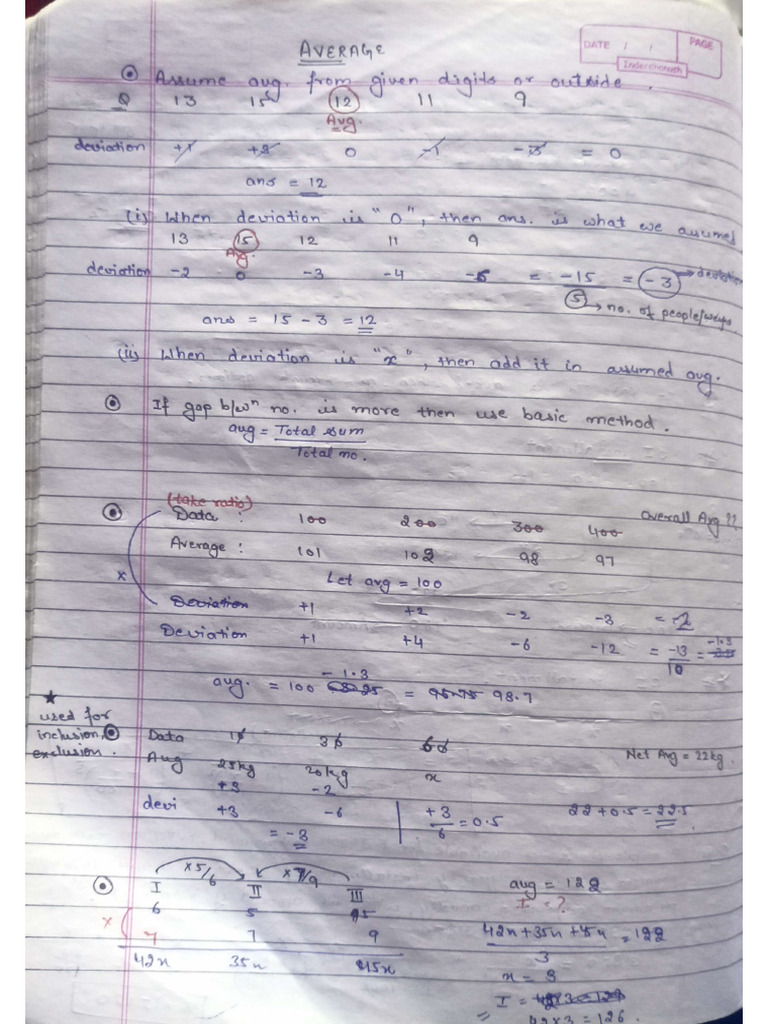 AVERAGE
DATE / / PAGE
⊙ Assume avg. from given digits or outside.
Q 13 15 12 11 9
Avg.
deviation +1 +3 0 -1 -3 = 0
ans = 12
(i) When deviation is "0", then ans. is what we asumed
13 15 12 11 9
Avg.
deviation -2 0 -3 -4 -6 = -15/5 = -3 → deviation
→ no. of people/ways
ans = 15 - 3 = 12
(ii) When deviation is "x", then add it in assumed avg.
⊙ If gap b/wⁿ no. is more then use basic method.
avg = Total sum
Total no.
(take ratio)
⊙ Data : 100 200 300 400 Overall Avg ??
Average : 101 102 98 97
x Let avg = 100
Deviation +1 +2 -2 -3 = -2
Deviation +1 +4 -6 -12 = -13/10 = -1.3
avg. = 100 - 1.3 = 98.7
★ used for inclusion, exclusion.
⊙ Data 15 35 65 Net Avg = 22kg.
Avg 25kg 20kg x
+3 -2
devi +3 -6 | +3/6 = 0.5 22 + 0.5 = 22.5
= -3
x5/6 x7/9
⊙ I II III avg = 122
6 5 5 I = ?
x 7 7 9 42x + 35x + 45x = 122
42x 35x 45x 3
x = 3
I =
= 42x3 = 126.